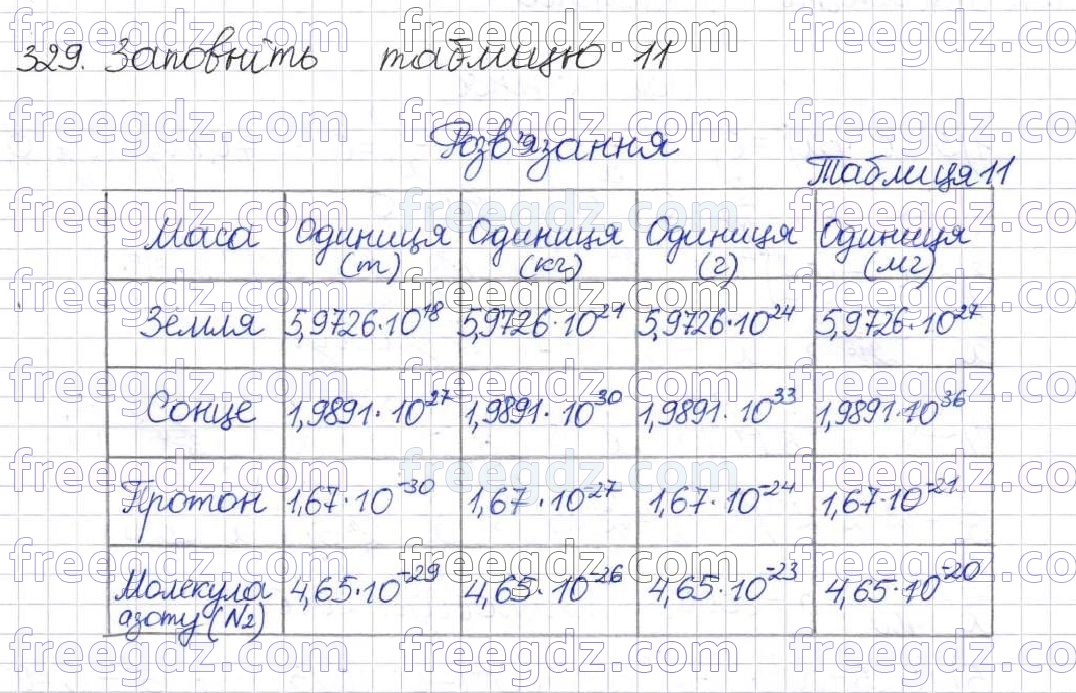 329. Заповніть таблицю 11
Розв'язання
Таблиця 11
Маса Одиниця (т) Одиниця (кг) Одиниця (г) Одиниця (мг)
Земля 5,9726·10¹⁸ 5,9726·10²¹ 5,9726·10²⁴ 5,9726·10²⁷
Сонце 1,9891·10²⁷ 1,9891·10³⁰ 1,9891·10³³ 1,9891·10³⁶
Протон 1,67·10⁻³⁰ 1,67·10⁻²⁷ 1,67·10⁻²⁴ 1,67·10⁻²¹
Молекула азоту (N₂) 4,65·10⁻²⁹ 4,65·10⁻²⁶ 4,65·10⁻²³ 4,65·10⁻²⁰
freegdz.com freegdz.com freegdz.com